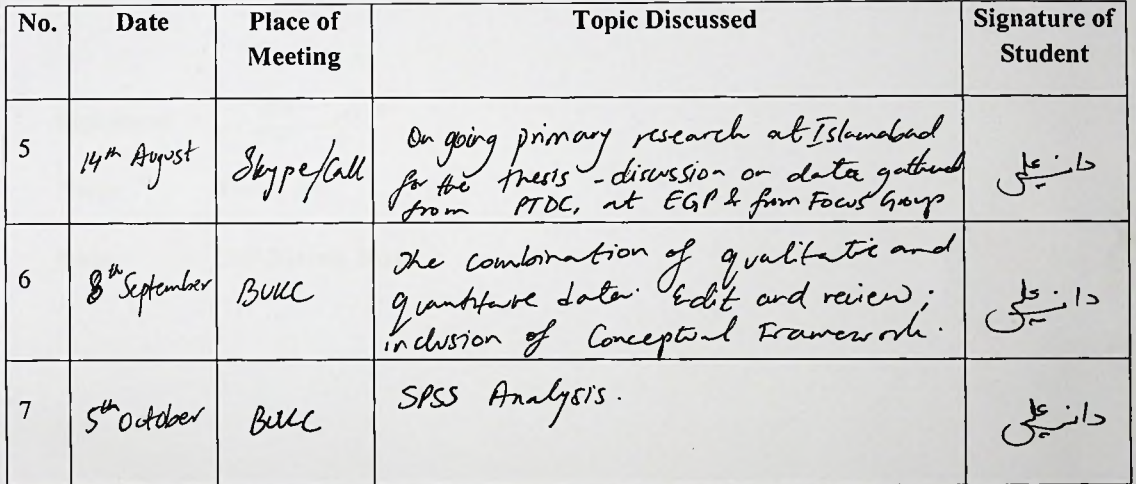 No. Date Place of Meeting Topic Discussed Signature of Student
5 14th August Skype/Call On going primary research at Islamabad
for the thesis - discussion on data gathered
from PTDC, at EGP & from Focus Group
6 8th September BUKC The combination of qualitatie and
quantitave data. Edit and review;
inclusion of Conceptual Framework.
7 5th October BUKC SPSS Analysis.